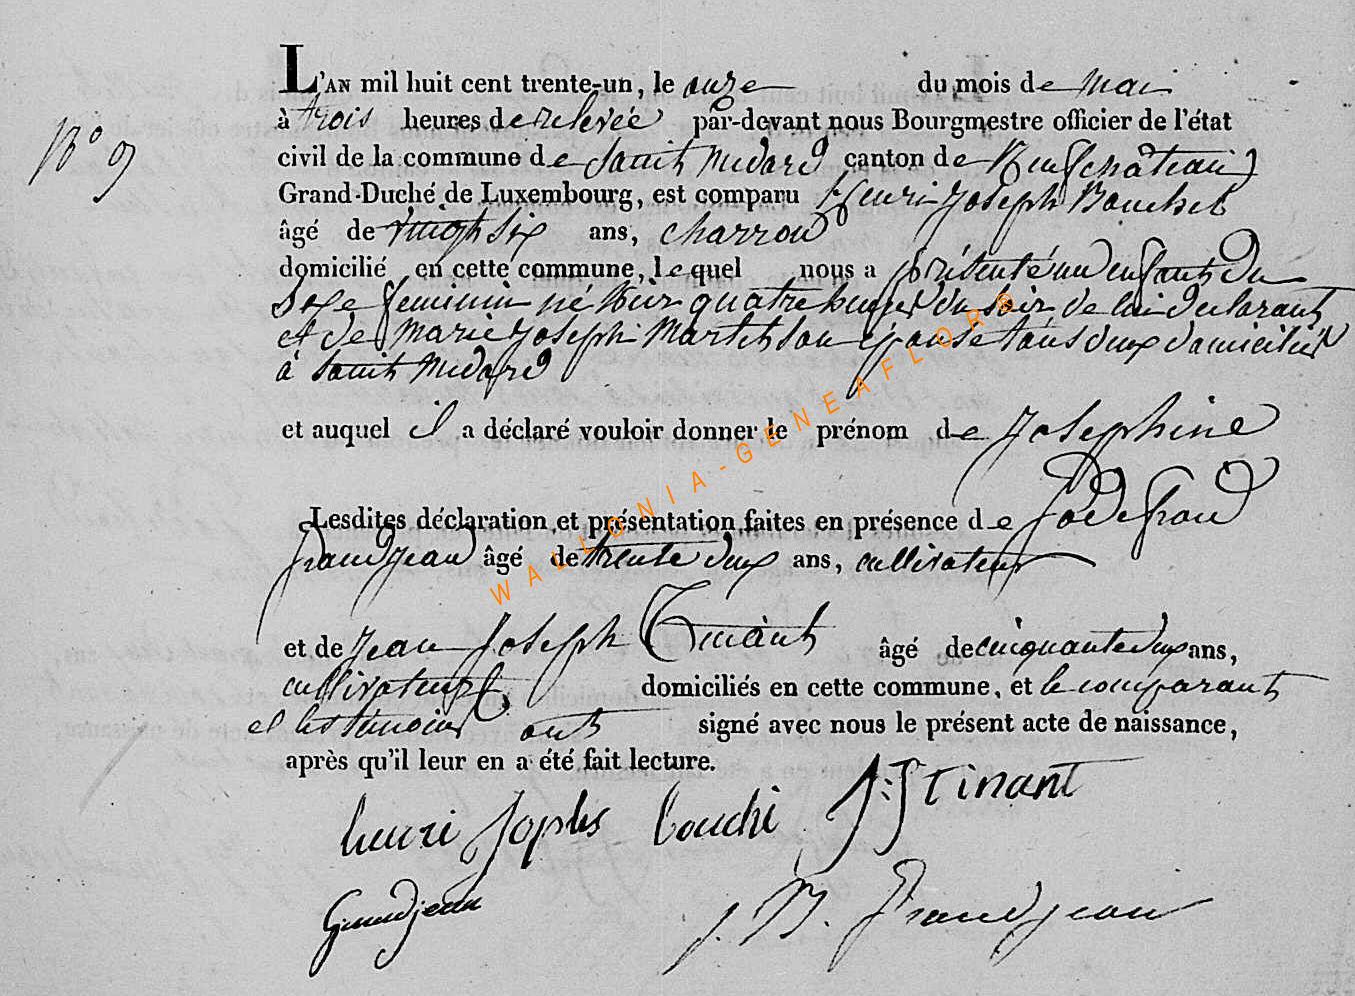 L'AN mil huit cent trente-un, le onze du mois de mai
à trois heures de relevée par-devant nous Bourgmestre officier de l'état
N° 9
civil de la commune de Saint Médard canton de Neufchâteau
Grand-Duché de Luxembourg, est comparu Henri Joseph Bouchet
âgé de vingt six ans, charron
domicilié en cette commune, lequel nous a présenté un enfant du
sexe feminin né hier quatre heures du soir de lui declarant
et de marie Joseph Martet son épouse tous deux domiciliés
à Saint Médard
et auquel il a déclaré vouloir donner le prénom de Josephine
Lesdites déclaration et présentation faites en présence de Godefroid
Grandjean âgé de trente deux ans, cultivateur
et de Jean Joseph Tinant âgé de cinquante deux ans,
cultivateur domiciliés en cette commune, et le comparant
et les témoins ont signé avec nous le présent acte de naissance,
après qu'il leur en a été fait lecture.
henri Jophs bouché J: J Tinant
Grandjean J. B. Grandjean
WALLONIA-GENEAFLOR®